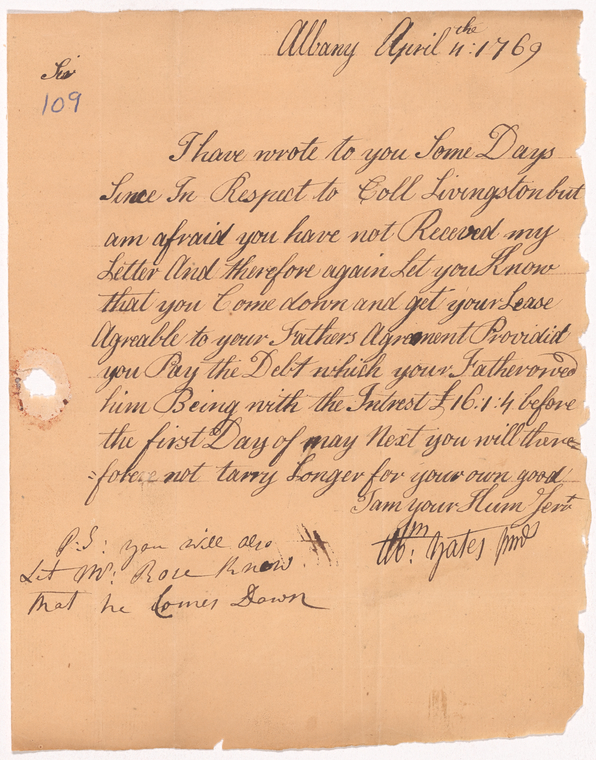 Albany April 4the: 1769
Sir
109
I have wrote to you Some Days
Since In Respect to Coll Livingston but
am afraid you have not Receved my
Letter And therefore again Let you Know
that you Come down and get your Lease
Agreable to your Fathers Agrement Providid
you Pay the Debt which your Father owed
him Being with the Intrest £16:1:4 before
the first Day of may Next you will there=
=fore not tarry Longer for your own good
I am your Hum Servt
Yates Junr
P.S: you will also
Let Mr: Rose Know
that he Comes Down